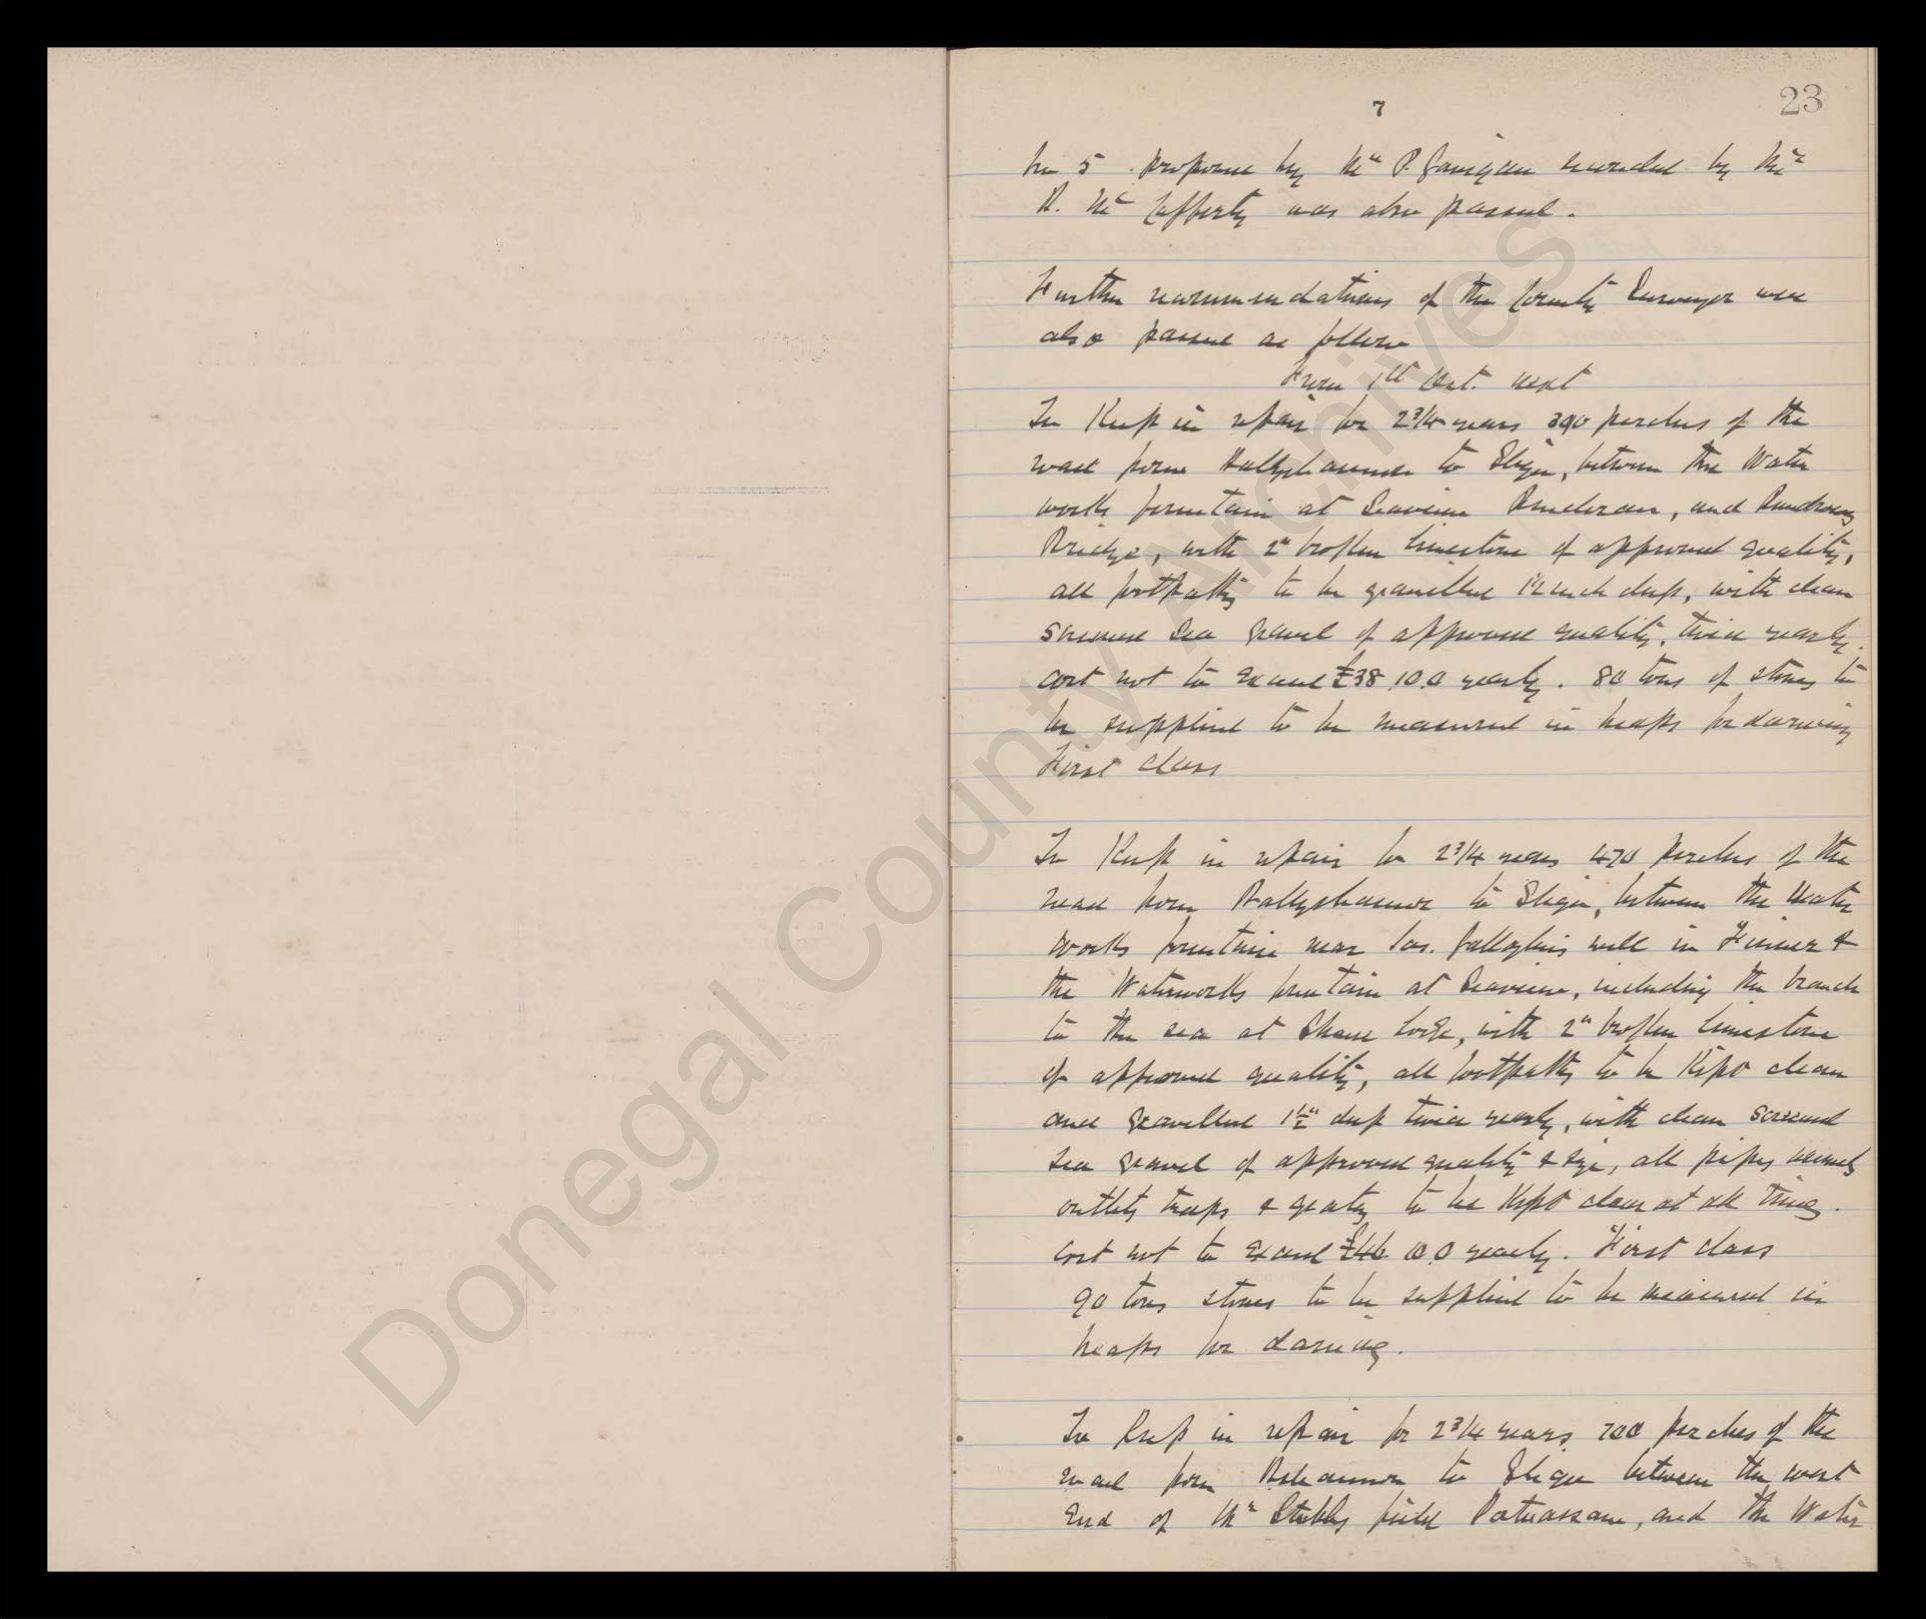 23
7
No 5 proposed by Mr P. Gavigan seconded by Mr
R. Mc Cafferty was also passed.
Further recommendations of the County Surveyor were
also passed as follows
From 1st Oct. next
To Keep in repair for 2 3/4 years 390 perches of the
road from Ballyshannon to Sligo, between the Water
works fountain at Seaview Bundoran, and Bundrowes
Bridge, with 2" broken limestone of approved quality,
all footpaths to be gravelled inch deep, with clean
screened Sea gravel of approved quality, twice yearly.
Cost not to Exceed £38.10.0 yearly. 80 tons of stones to
be supplied to be measured in heaps for darning
First class
To Keep in repair for 2 3/4 years 470 perches of the
road from Ballyshannon to Sligo, between the Water
works fountain near Jas. Gallogly's well in Finner &
the Waterworks fountain at Seaview, including the branch
to the sea at Shane with 2" broken limestone
of approved quality, all footpaths to be Kept clean
and gravelled 1 1/2" deep twice yearly, with clean screened
sea gravel of approved quality & size, all pipes
outlets traps & grates to be Kept clear at all times.
Cost not to Exceed £46 0.0 yearly. First class
90 tons stones to be supplied to be measured in
heaps for darning.
To Keep in repair for 2 3/4 years 700 perches of the
road from Bshannon to Sligo between the west
End of Mr Stubbs field Portnassan, and the Water
Donegal County Archives